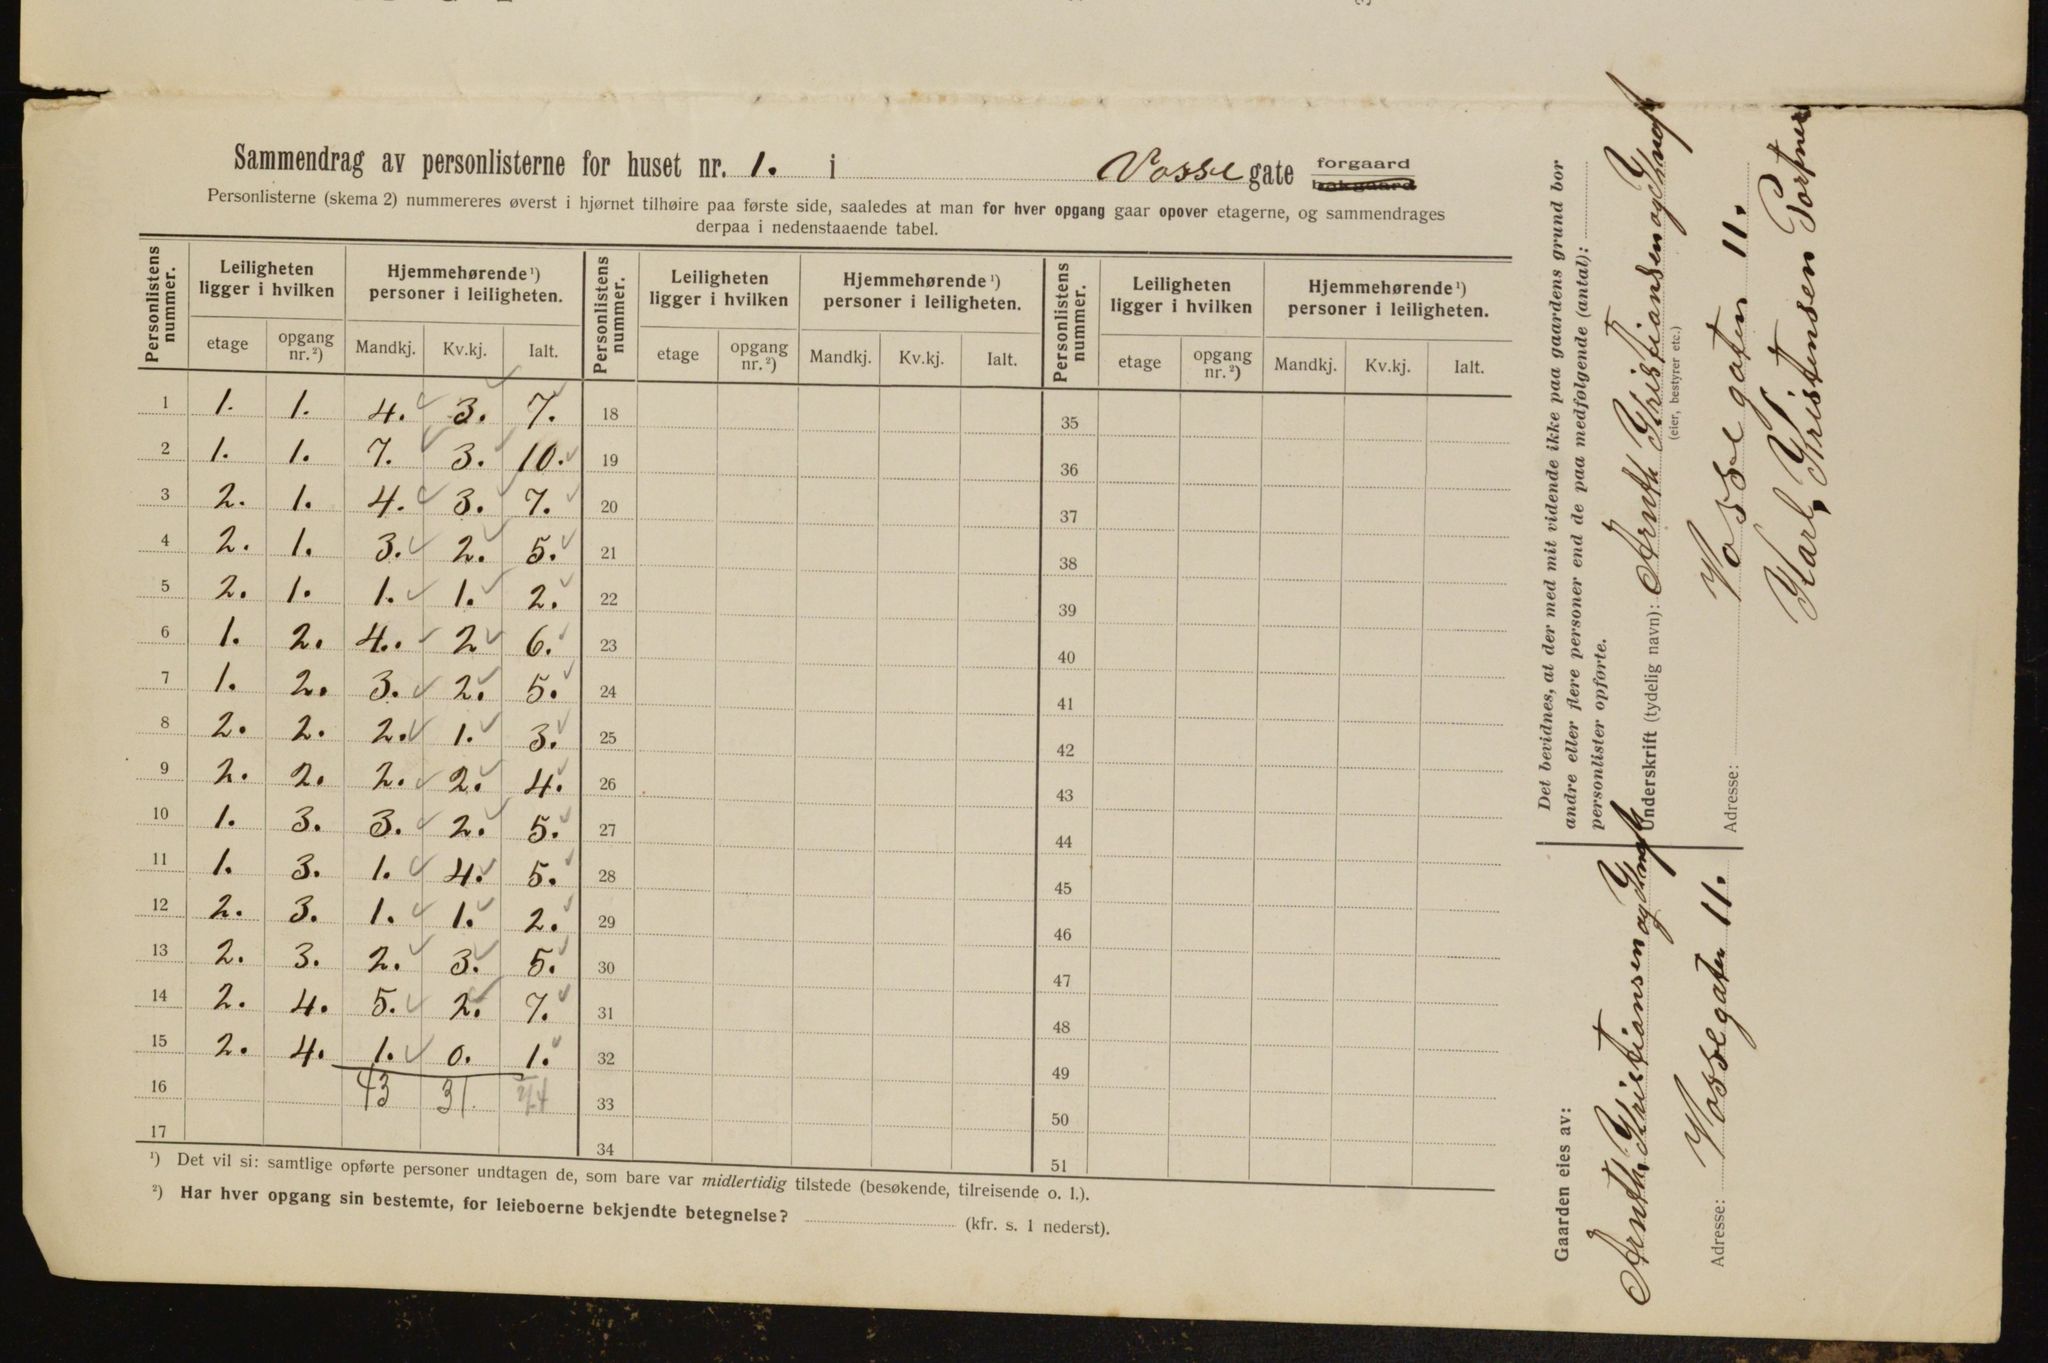 Sammendrag av personlisterne for huset nr. 1. i Vosse gate forgaard bakgaard
Personlisterne (skema 2) nummereres øverst i hjørnet tilhøire paa første side, saaledes at man for hver opgang gaar opover etagerne, og sammendrages
derpaa i nedenstaaende tabel.
Personlistens nummer. Leiligheten ligger i hvilken Hjemmehørende ¹) personer i leiligheten. Personlistens nummer. Leiligheten ligger i hvilken Hjemmehørende ¹) personer i leiligheten. Personlistens nummer. Leiligheten ligger i hvilken Hjemmehørende ¹) personer i leiligheten.
etage opgang nr. ²) Mandkj. Kv.kj. Ialt. etage opgang nr. ²) Mandkj. Kv.kj. Ialt. etage opgang nr. ²) Mandkj. Kv.kj. Ialt.
1 1. 1. 4. 3. 7. 18 35
2 1. 1. 7. 3. 10. 19 36
3 2. 1. 4. 3. 7. 20 37
4 2. 1. 3. 2. 5. 21 38
5 2. 1. 1. 1. 2. 22 39
6 1. 2. 4. 2 6. 23 40
7 1. 2. 3. 2. 5. 24 41
8 2. 2. 2. 1. 3. 25 42
9 2. 2. 2. 2. 4. 26 43
10 1. 3. 3. 2. 5. 27 44
11 1. 3. 1. 4. 5. 28 45
12 2. 3. 1. 1. 2. 29 46
13 2. 3. 2. 3. 5. 30 47
14 2. 4. 5. 2. 7. 31 48
15 2. 4. 1. 0. 1. 32 49
16 43 31 74 33 50
17 34 51
¹) Det vil si: samtlige opførte personer undtagen de, som bare var midlertidig tilstede (besøkende, tilreisende o. l.).
²) Har hver opgang sin bestemte, for leieboerne bekjendte betegnelse? (kfr. s. 1 nederst).
Det bevidnes, at der med mit vidende ikke paa gaardens grund bor
andre eller flere personer end de paa medfølgende (antal):
personlister opførte.
Underskrift (tydelig navn): Arnth. Kristiansen og
(eier, bestyrer etc.)
Adresse: Vossegaten 11.
Karl Kristensen Portner
Gaarden eies av:
Arnth. Kristiansen og
Adresse: Vossegaten 11.